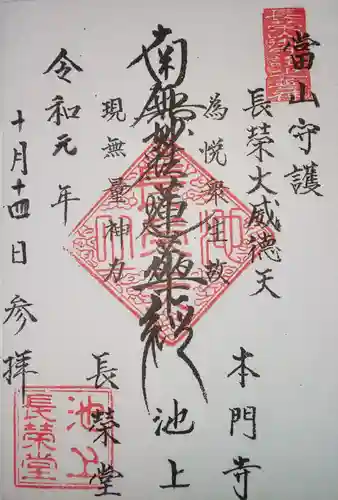 當山守護
長榮大威德天
本門寺
為悦衆生故
南無妙法蓮華経
池上
現無量神力
長榮堂
令和元年
十月十四日参拝
池上
長榮堂